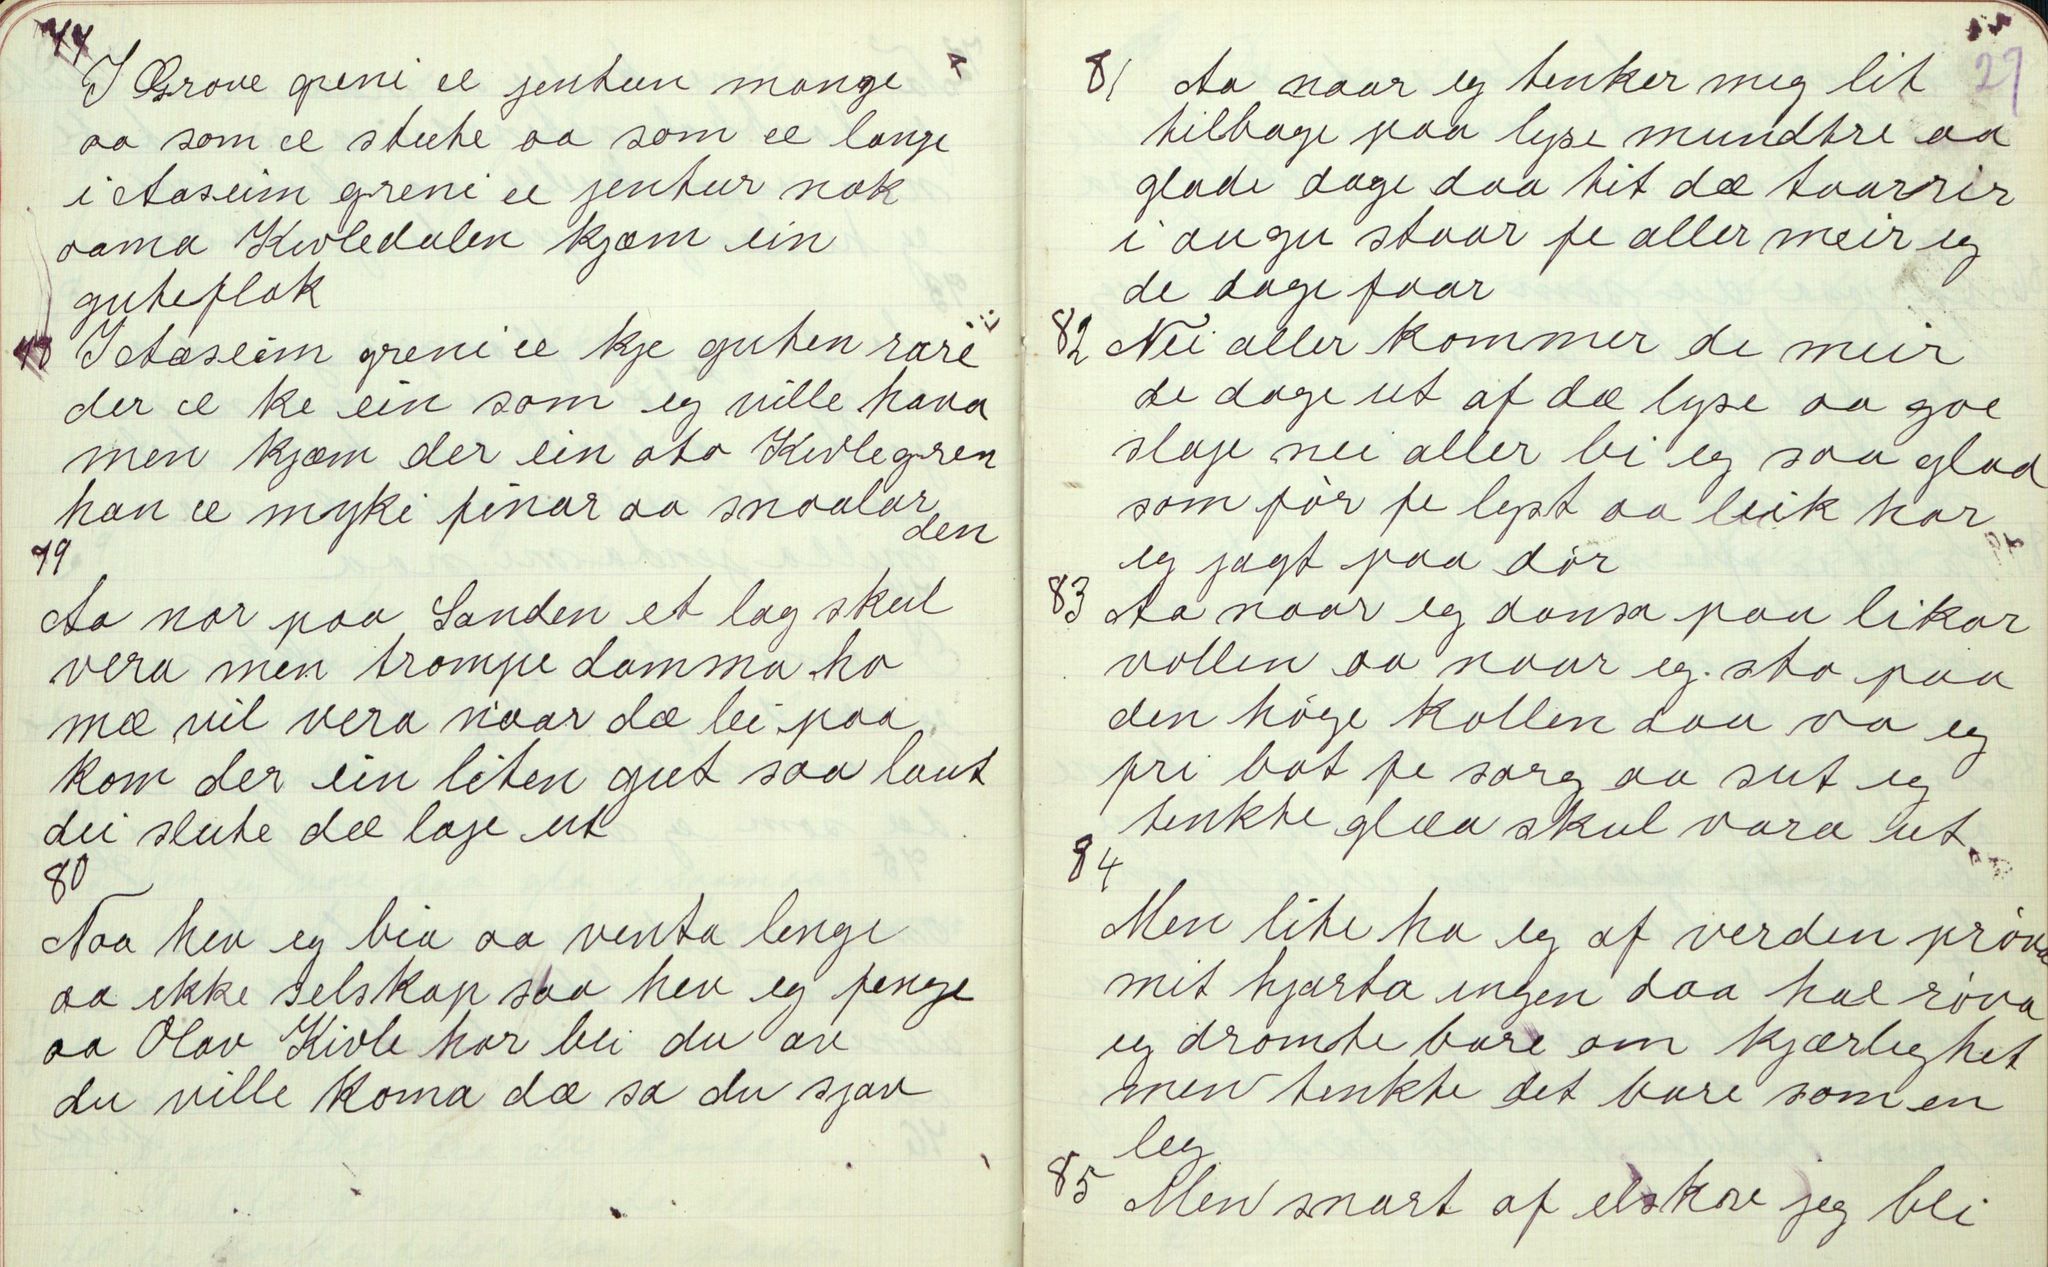 77
I Grove greni ee jentun mange
aa som ee stute aa som ee lange
i Aaseim greni ee jentur nok
aama Kivledalen kjæm ein
guteflok
78 I Aaseim greni ee kje guten rare
der ee ke ein som eg ville hava
men kjæm der ein ata Kivlegren
han ee myki finar aa snaalar
den
79
Aa nar paa Sanden et lag skul
vera men trompe damma ho
mæ vil vera naar dæ lei paa
kom der ein liten gut saa laut
dei slute dæ laje ut
80
Naa hev eg bia aa venta lenge
aa ikke selskap saa hev eg penge
aa Olav Kivle har bli du av
du ville koma dæ sa du sjav
29
81 Aa naar eg tenker meg lit
tilbage paa lyse mundtre aa
glade dage daa tit dæ taarrir
i augu staar fe aller meir eg
de dage faar
82 Nei aller kommer de meir
de dage ut af dæ lyse aa goe
slaje nei aller bi eg saa glad
som før fe lyst aa leik har
eg jagt paa dør
83 Aa naar eg dansa paa likar
vollen aa naar eg sto paa
den høge kollen daa va eg
fri bot fe sorg aa sut eg
tenkte glæa skul vara ut
84
Men lite ha eg af verden prøva
mit hjarta ingen daa hae røva
eg drømte bare om kjærleghet
men tenkte det bare som en
leg
85 Men snart af elskov jeg bli